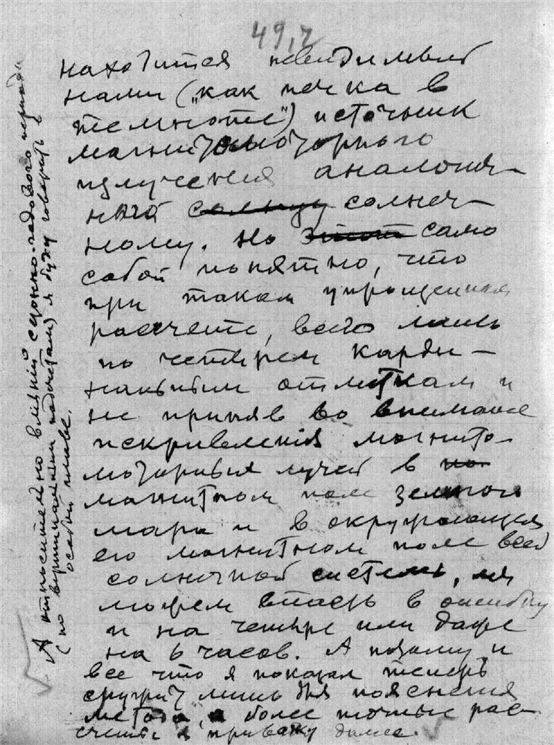 49,2
находится невидимый
нами („как печка в
темноте“) источник
магнитомоторного
излучения аналогич-
ный солнцу солнеч-
ному. Но этот само
собой понятно, что
при таком упрощенном
расчете, всего лишь
по четырем карди-
нальным отметкам и
не приняв во внимание
искривления магнито-
моторных лучей в по
магнитном поле земного
шара и в окружающем
его магнитном поле всей
солнечной системы, мы
можем впасть в ошибку
и на четыре или даже
на 6 часов. А потому и
все что я показал теперь
служит лишь для пояснения
метода, а более точные рас-
четы я привожу далее.
А относительно влияний
(по вертикальным) я буду говорить в
особой главе.